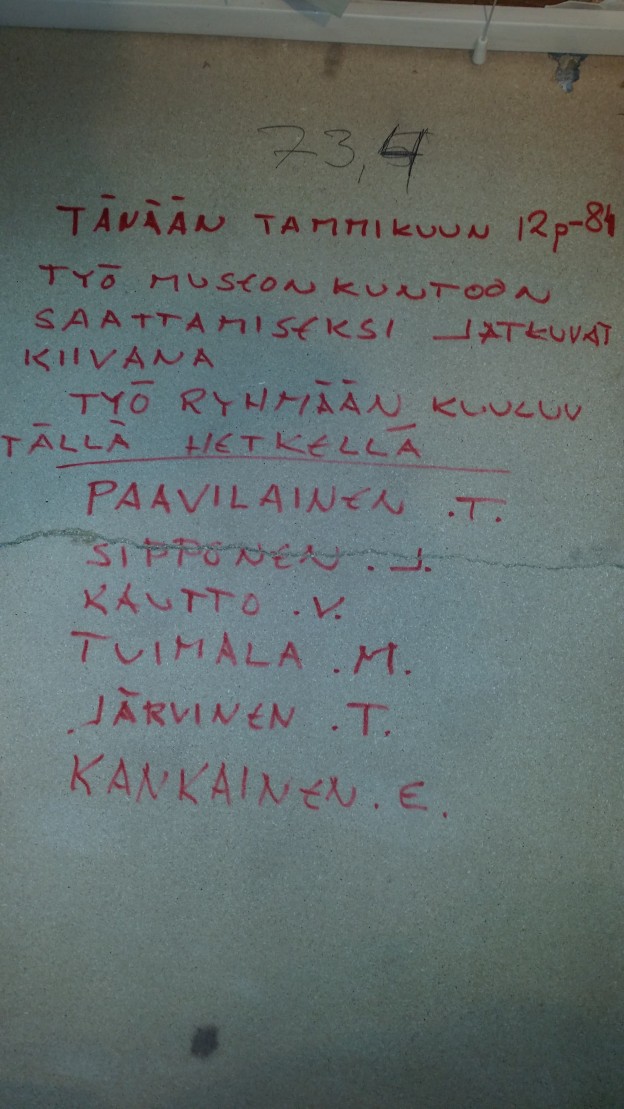 73,4
TÄNÄÄN TAMMIKUUN 12p-84
TYÖ MUSEON KUNTOON
SAATTAMISEKSI JATKUVAT
KIIVANA
TYÖ RYHMÄÄN KUULUU
TÄLLÄ HETKELLÄ
PAAVILAINEN .T.
SIPPONEN . J.
KAUTTO .V.
TUIMALA .M.
JÄRVINEN .T.
KANKAINEN . E.